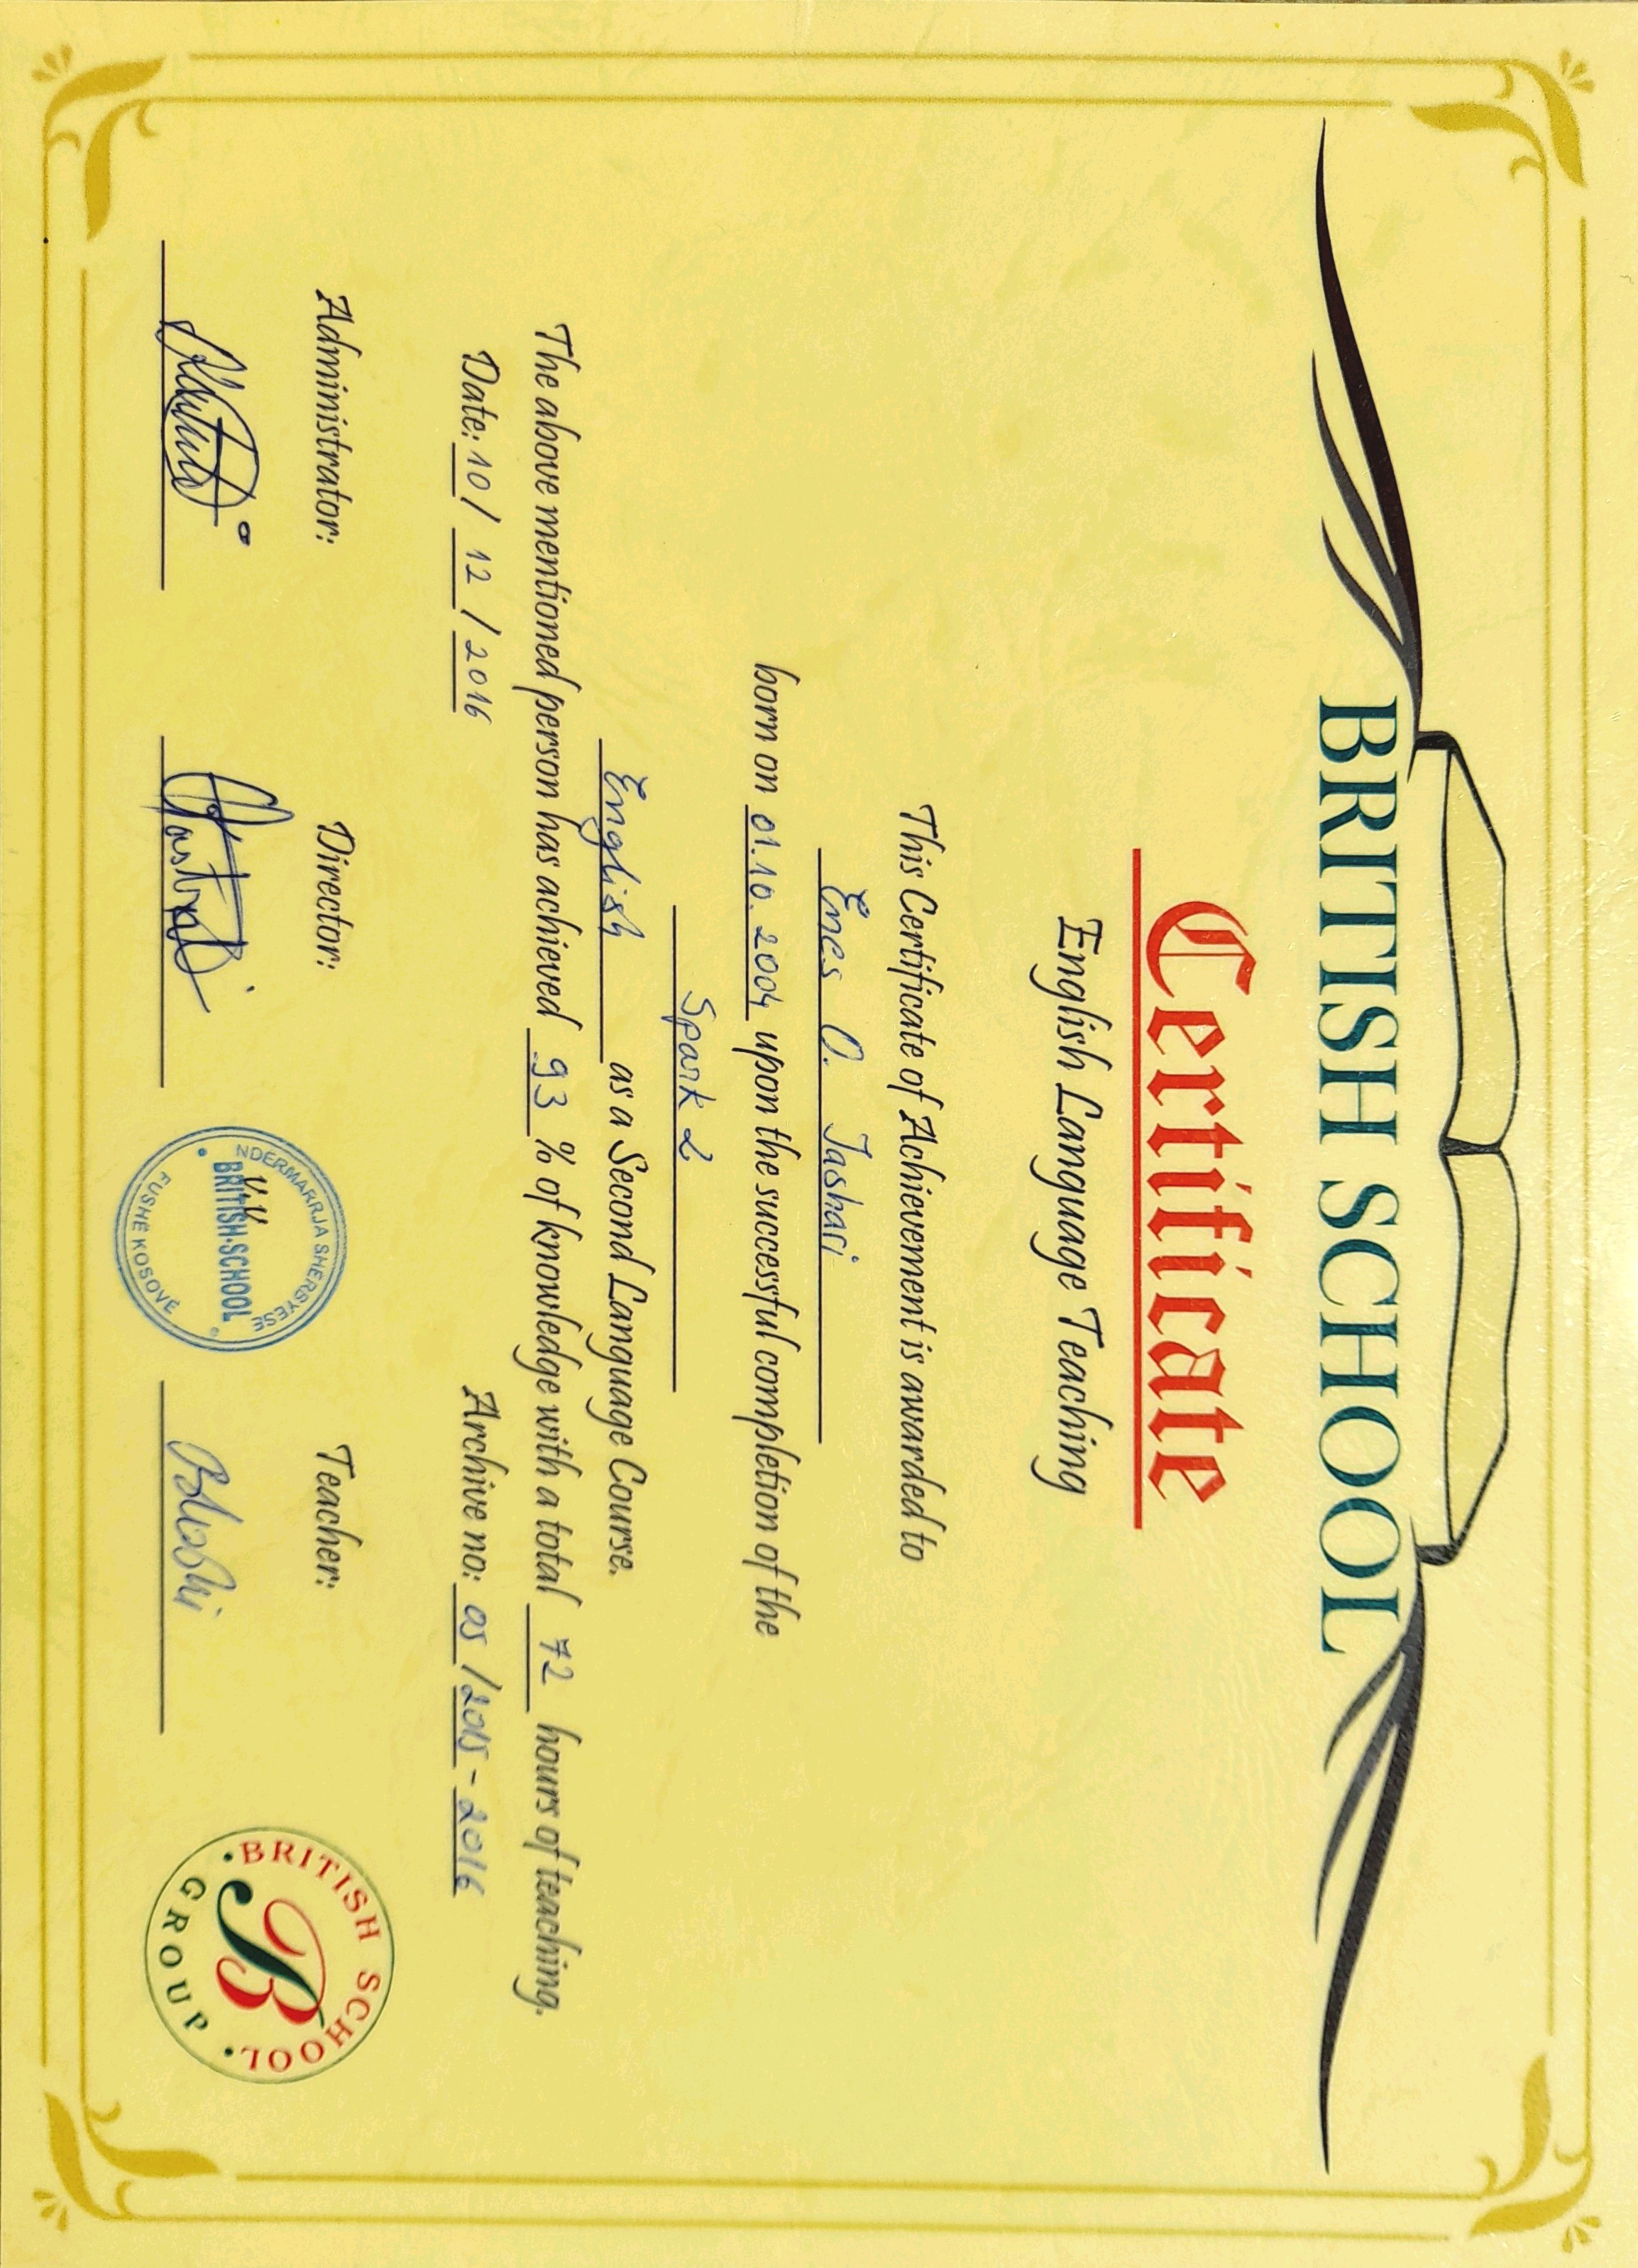 BRITISH SCHOOL
Certificate
English Language Teaching
This Certificate of Achievement is awarded to
Enes O. Jashari
born on 01.10.2004 upon the successful completion of the
Spark 2
English as a Second Language Course.
The above mentioned person has achieved 93 % of knowledge with a total 72 hours of teaching.
Date: 10 / 12 / 2016 Archive no: 05 / 2015 - 2016
Administrator: Director: Teacher:
NDERMARRJA SHERBYESE
V.V
BRITISH-SCHOOL
FUSHË KOSOVË
BRITISH SCHOOL
B
GROUP